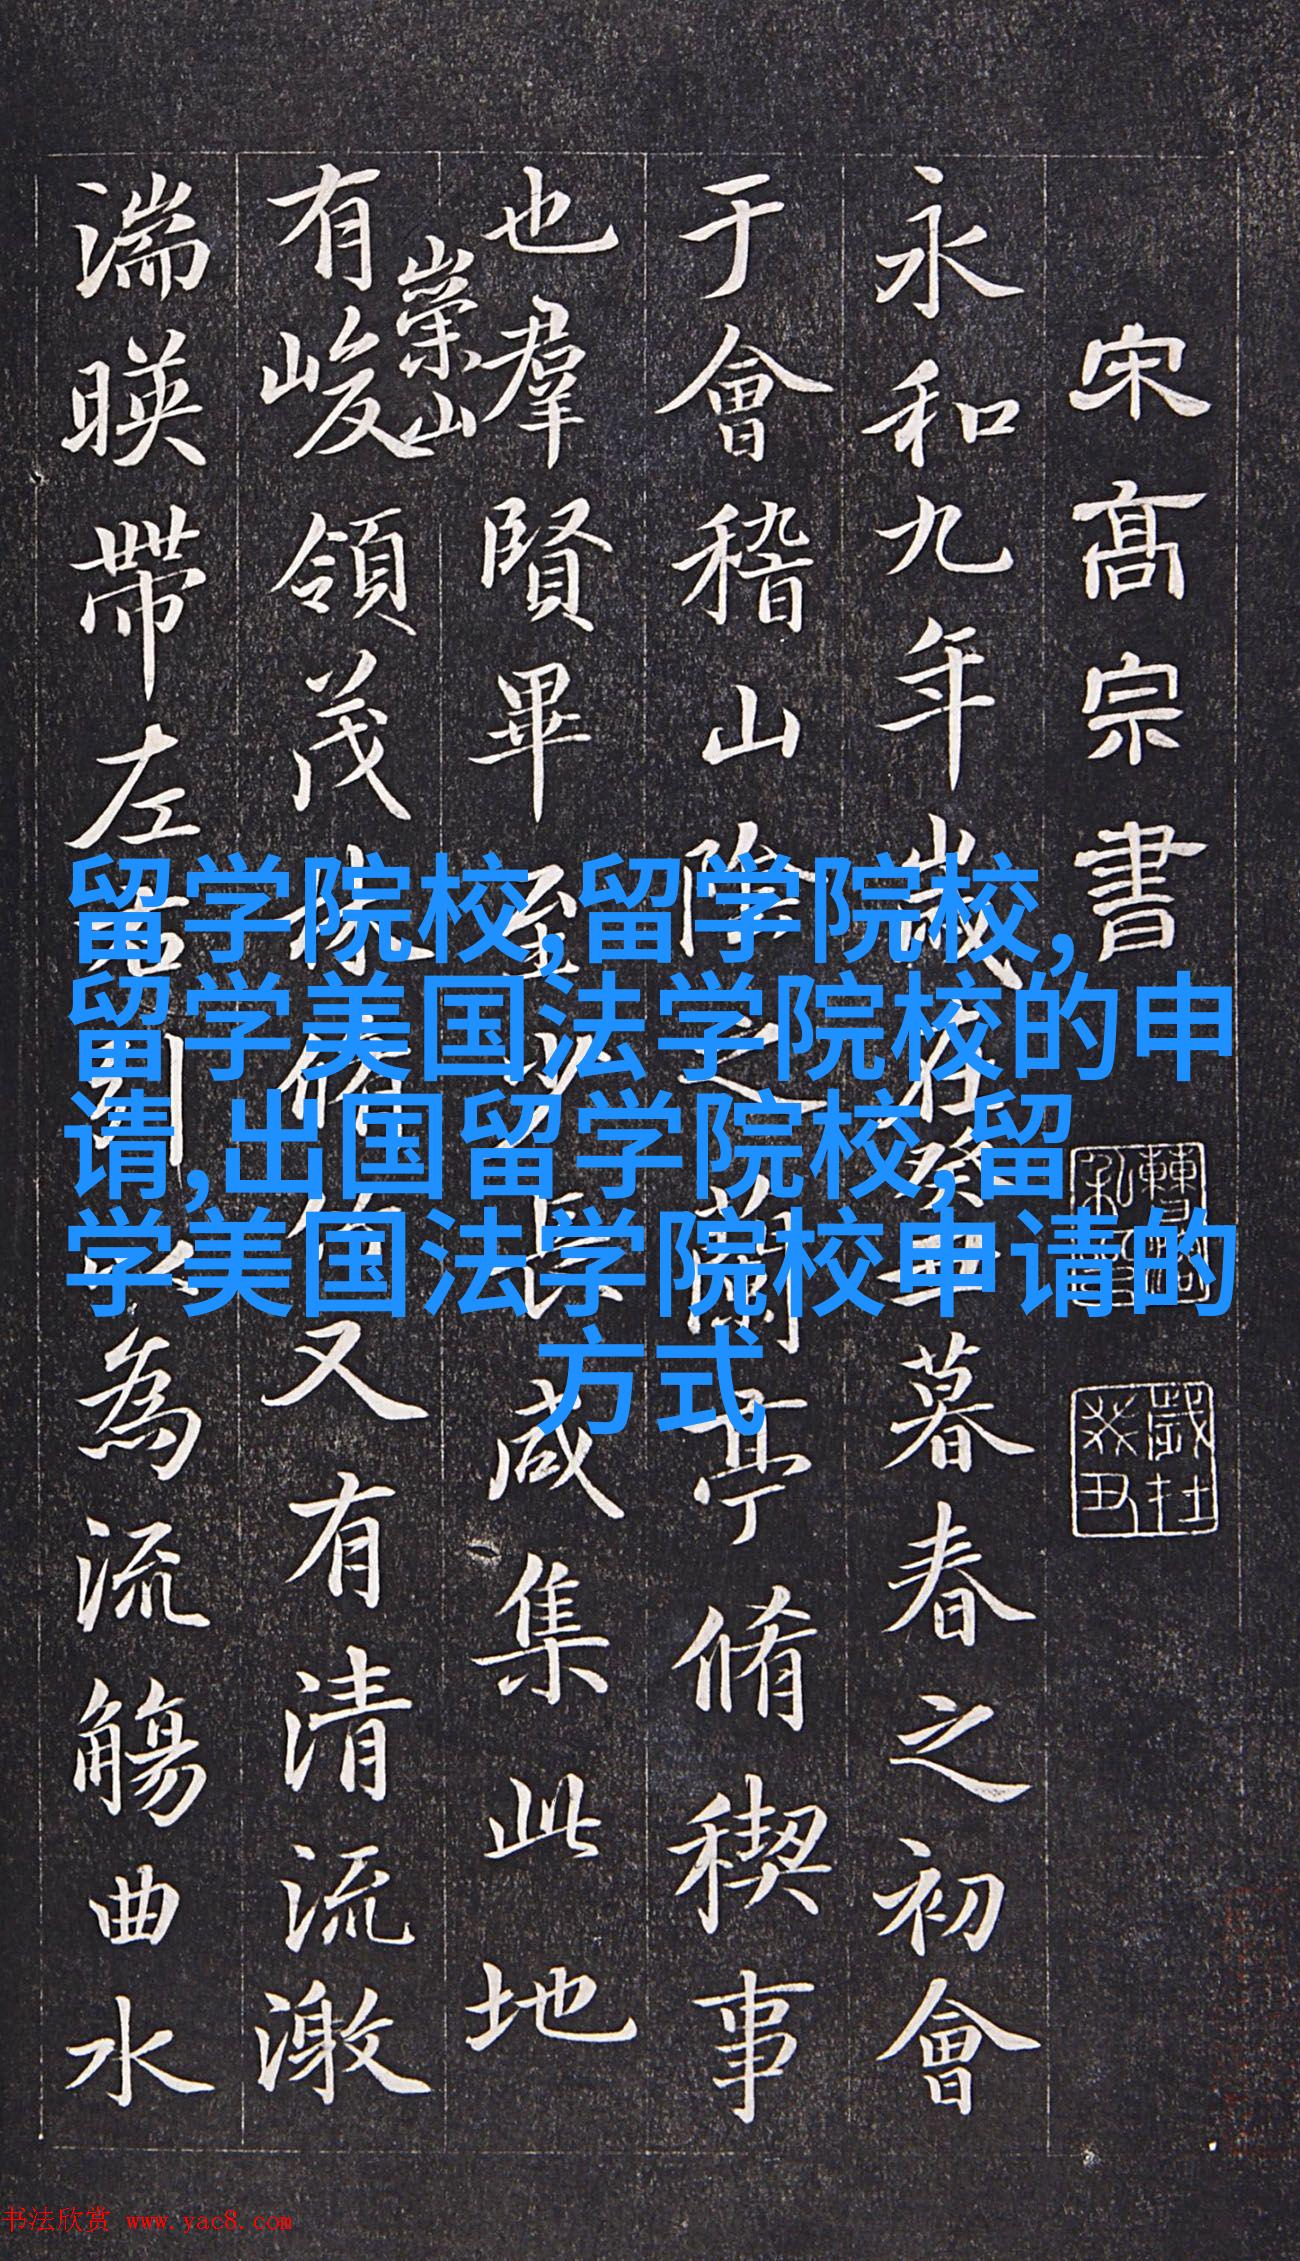 宋髙宗書
歲在癸丑
永和九年歲在癸丑暮春之初會
于會稽山陰之蘭亭脩稧事
也羣賢畢至少長咸集此地
崇山
有峻領茂林脩竹又有清流激
湍暎帶左右引以為流觴曲水
留学院校,留学院校,
留学美国法学院校的申
请,出国留学院校,留
学美国法学院校申请的
方式
书法欣赏 www.yac8.com